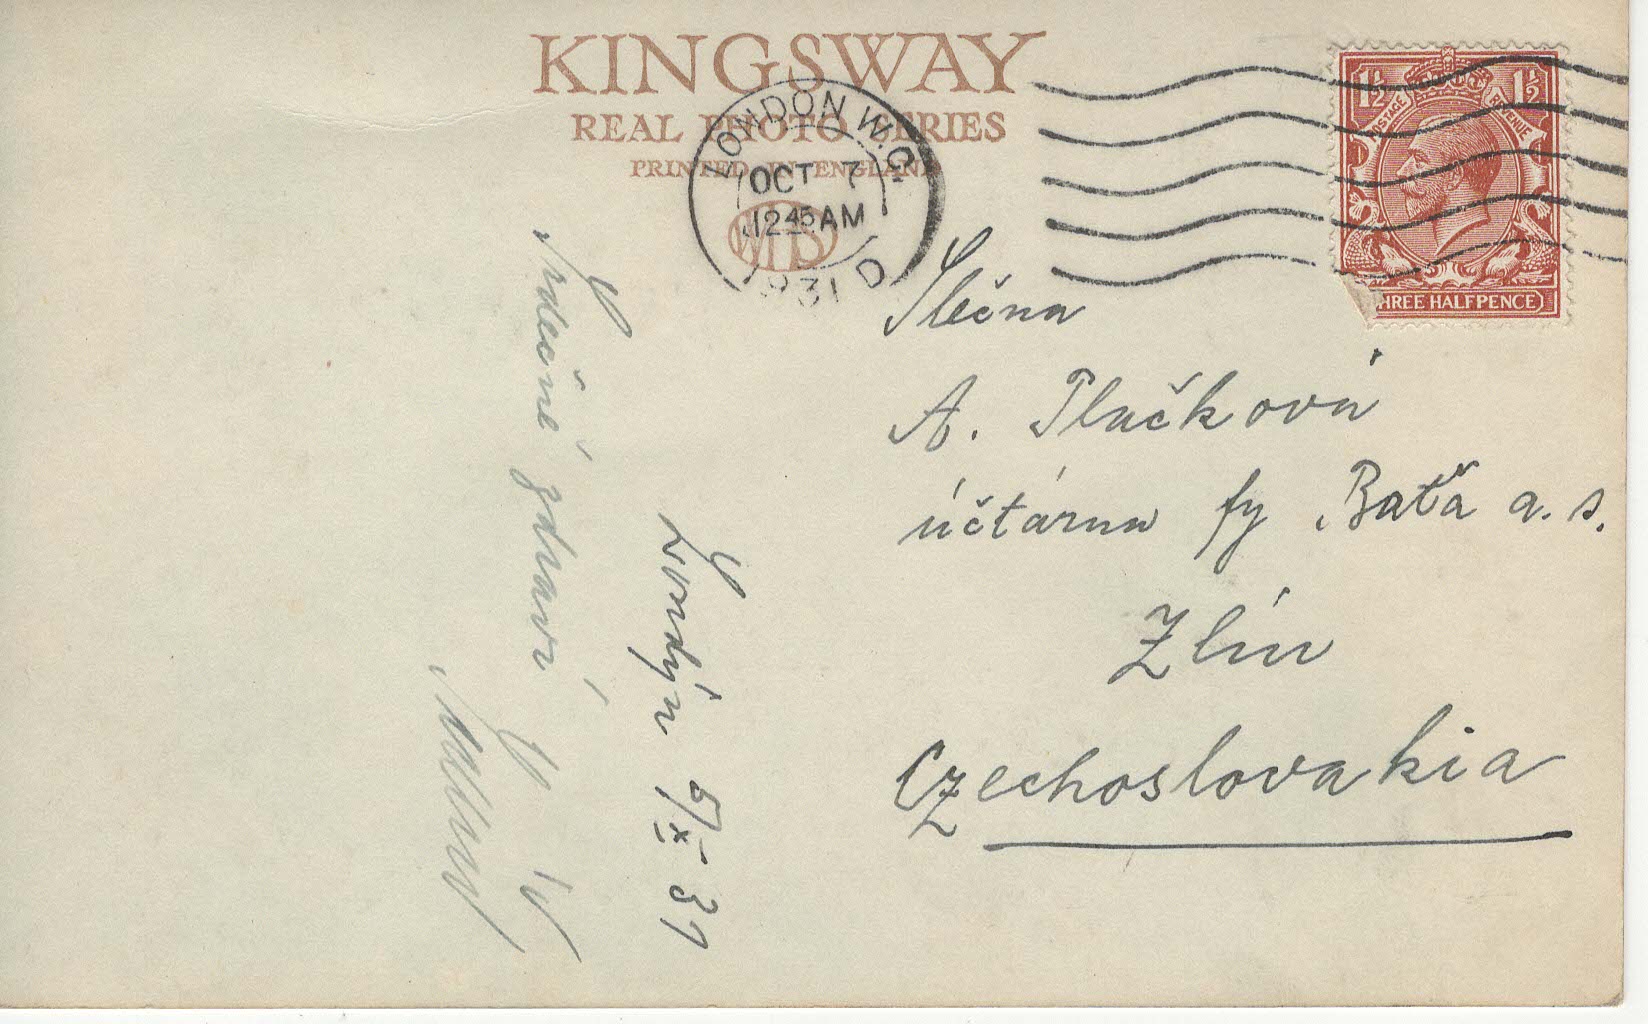 KINGSWAY
REAL PHOTO SERIES
PRINTED IN ENGLAND
WHS
LONDON W.C.
OCT 7
12 45 AM
1931 D
1½ 1½
POSTAGE REVENUE
THREE HALFPENCE
Slečna
A. Plačková
účtárna fy Baťa a. s.
Zlín
Czechoslovakia
Londýn 5/X 31
Srdečně zdraví